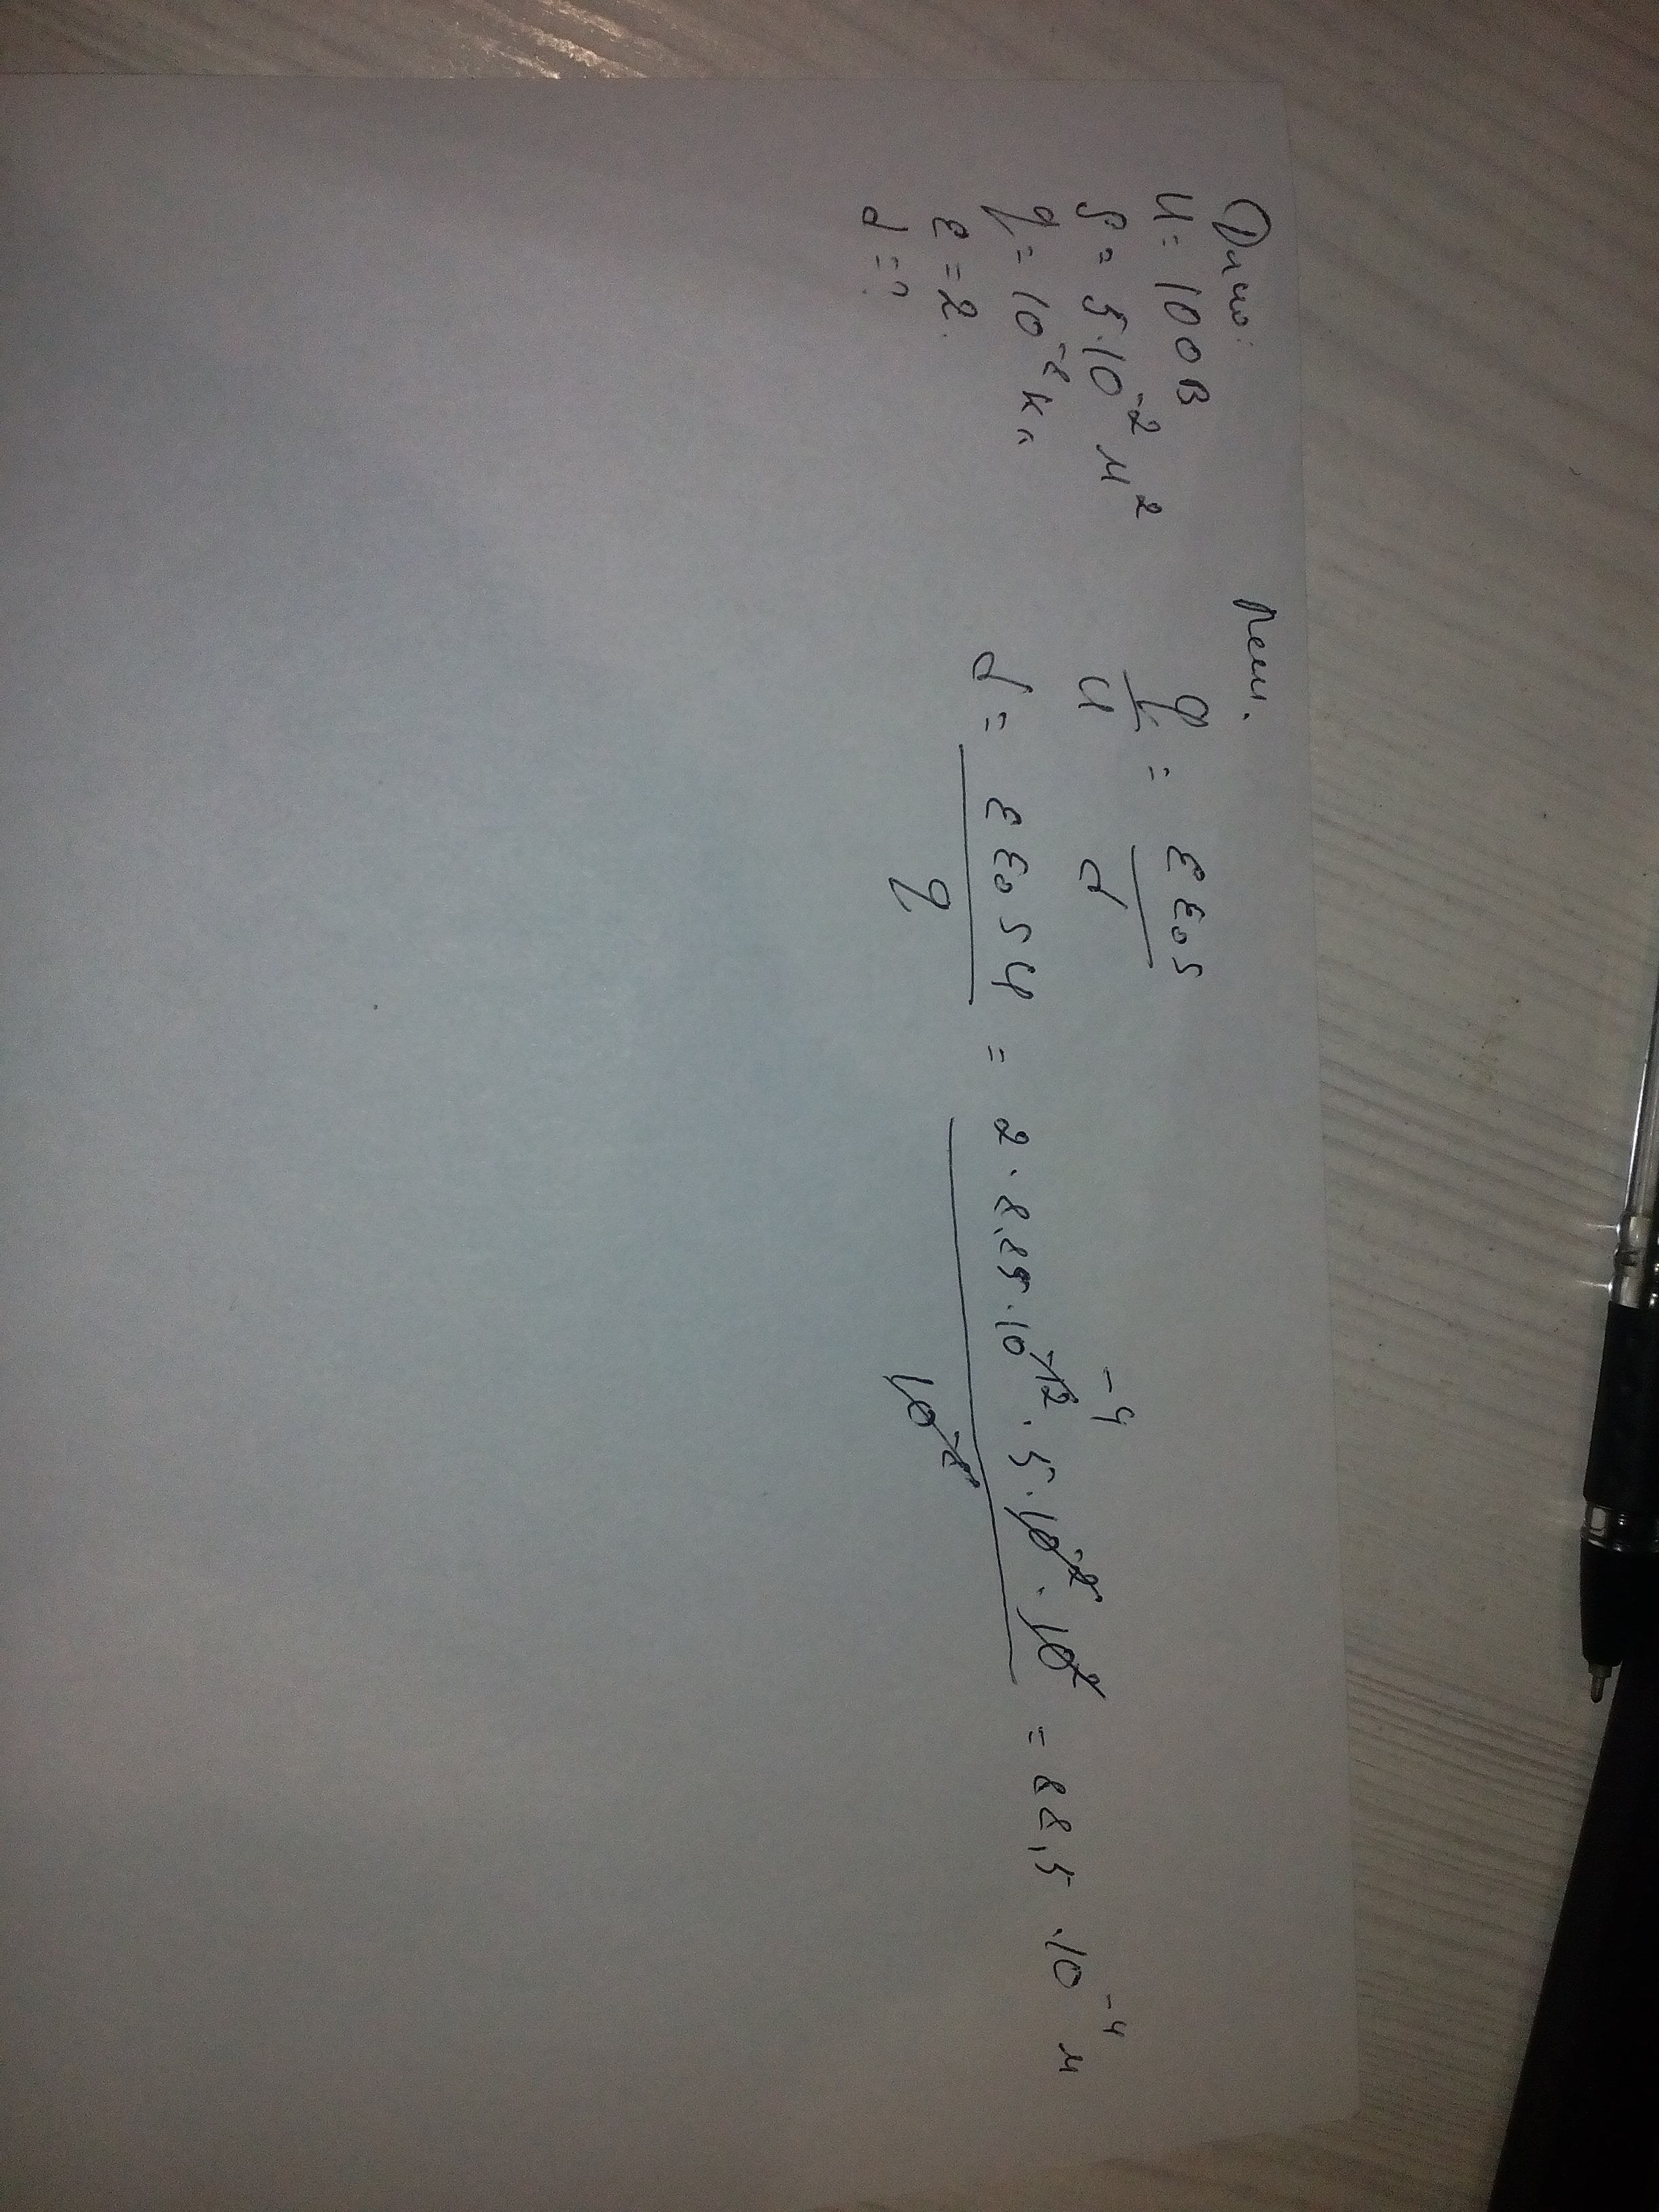 Дано:
U = 100 В
S = 5·10⁻² м²
q = 10⁻⁸ Кл
ε = 2
d = ?
Реш.
q/U = εε₀S/d
d = εε₀SU/q = 2·8,85·10⁻¹²·5·10⁻²·10²/10⁻⁸ = 88,5·10⁻⁴ м
-4